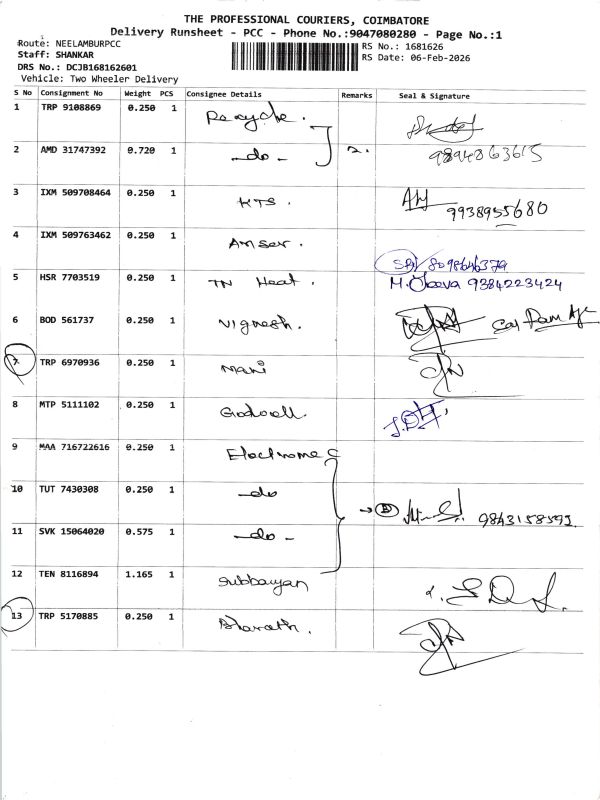 THE PROFESSIONAL COURIERS, COIMBATORE
Delivery Runsheet - PCC - Phone No.:9047080280 - Page No.:1
Route: NEELAMBURPCC
Staff: SHANKAR
DRS No.: DCJB168162601
Vehicle: Two Wheeler Delivery
RS No.: 1681626
RS Date: 06-Feb-2026
S No Consignment No Weight PCS Consignee Details Remarks Seal & Signature
1 TRP 9108869 0.250 1 Recycle.
2 AMD 31747392 0.720 1 -do- 2. 9894863615
3 IXM 509708464 0.250 1 KTS. 9938955680
4 IXM 509763462 0.250 1 Amser. 8098646379
5 HSR 7703519 0.250 1 TN Heat. M. Jeeva 9384223424
6 BOD 561737 0.250 1 Vignesh.
7 TRP 6970936 0.250 1 Mani
8 MTP 5111102 0.250 1
9 MAA 716722616 0.250 1
10 TUT 7430308 0.250 1 -do
11 SVK 15064020 0.575 1 -do-
12 TEN 8116894 1.165 1 Subbaiyan
13 TRP 5170885 0.250 1 Bharath.